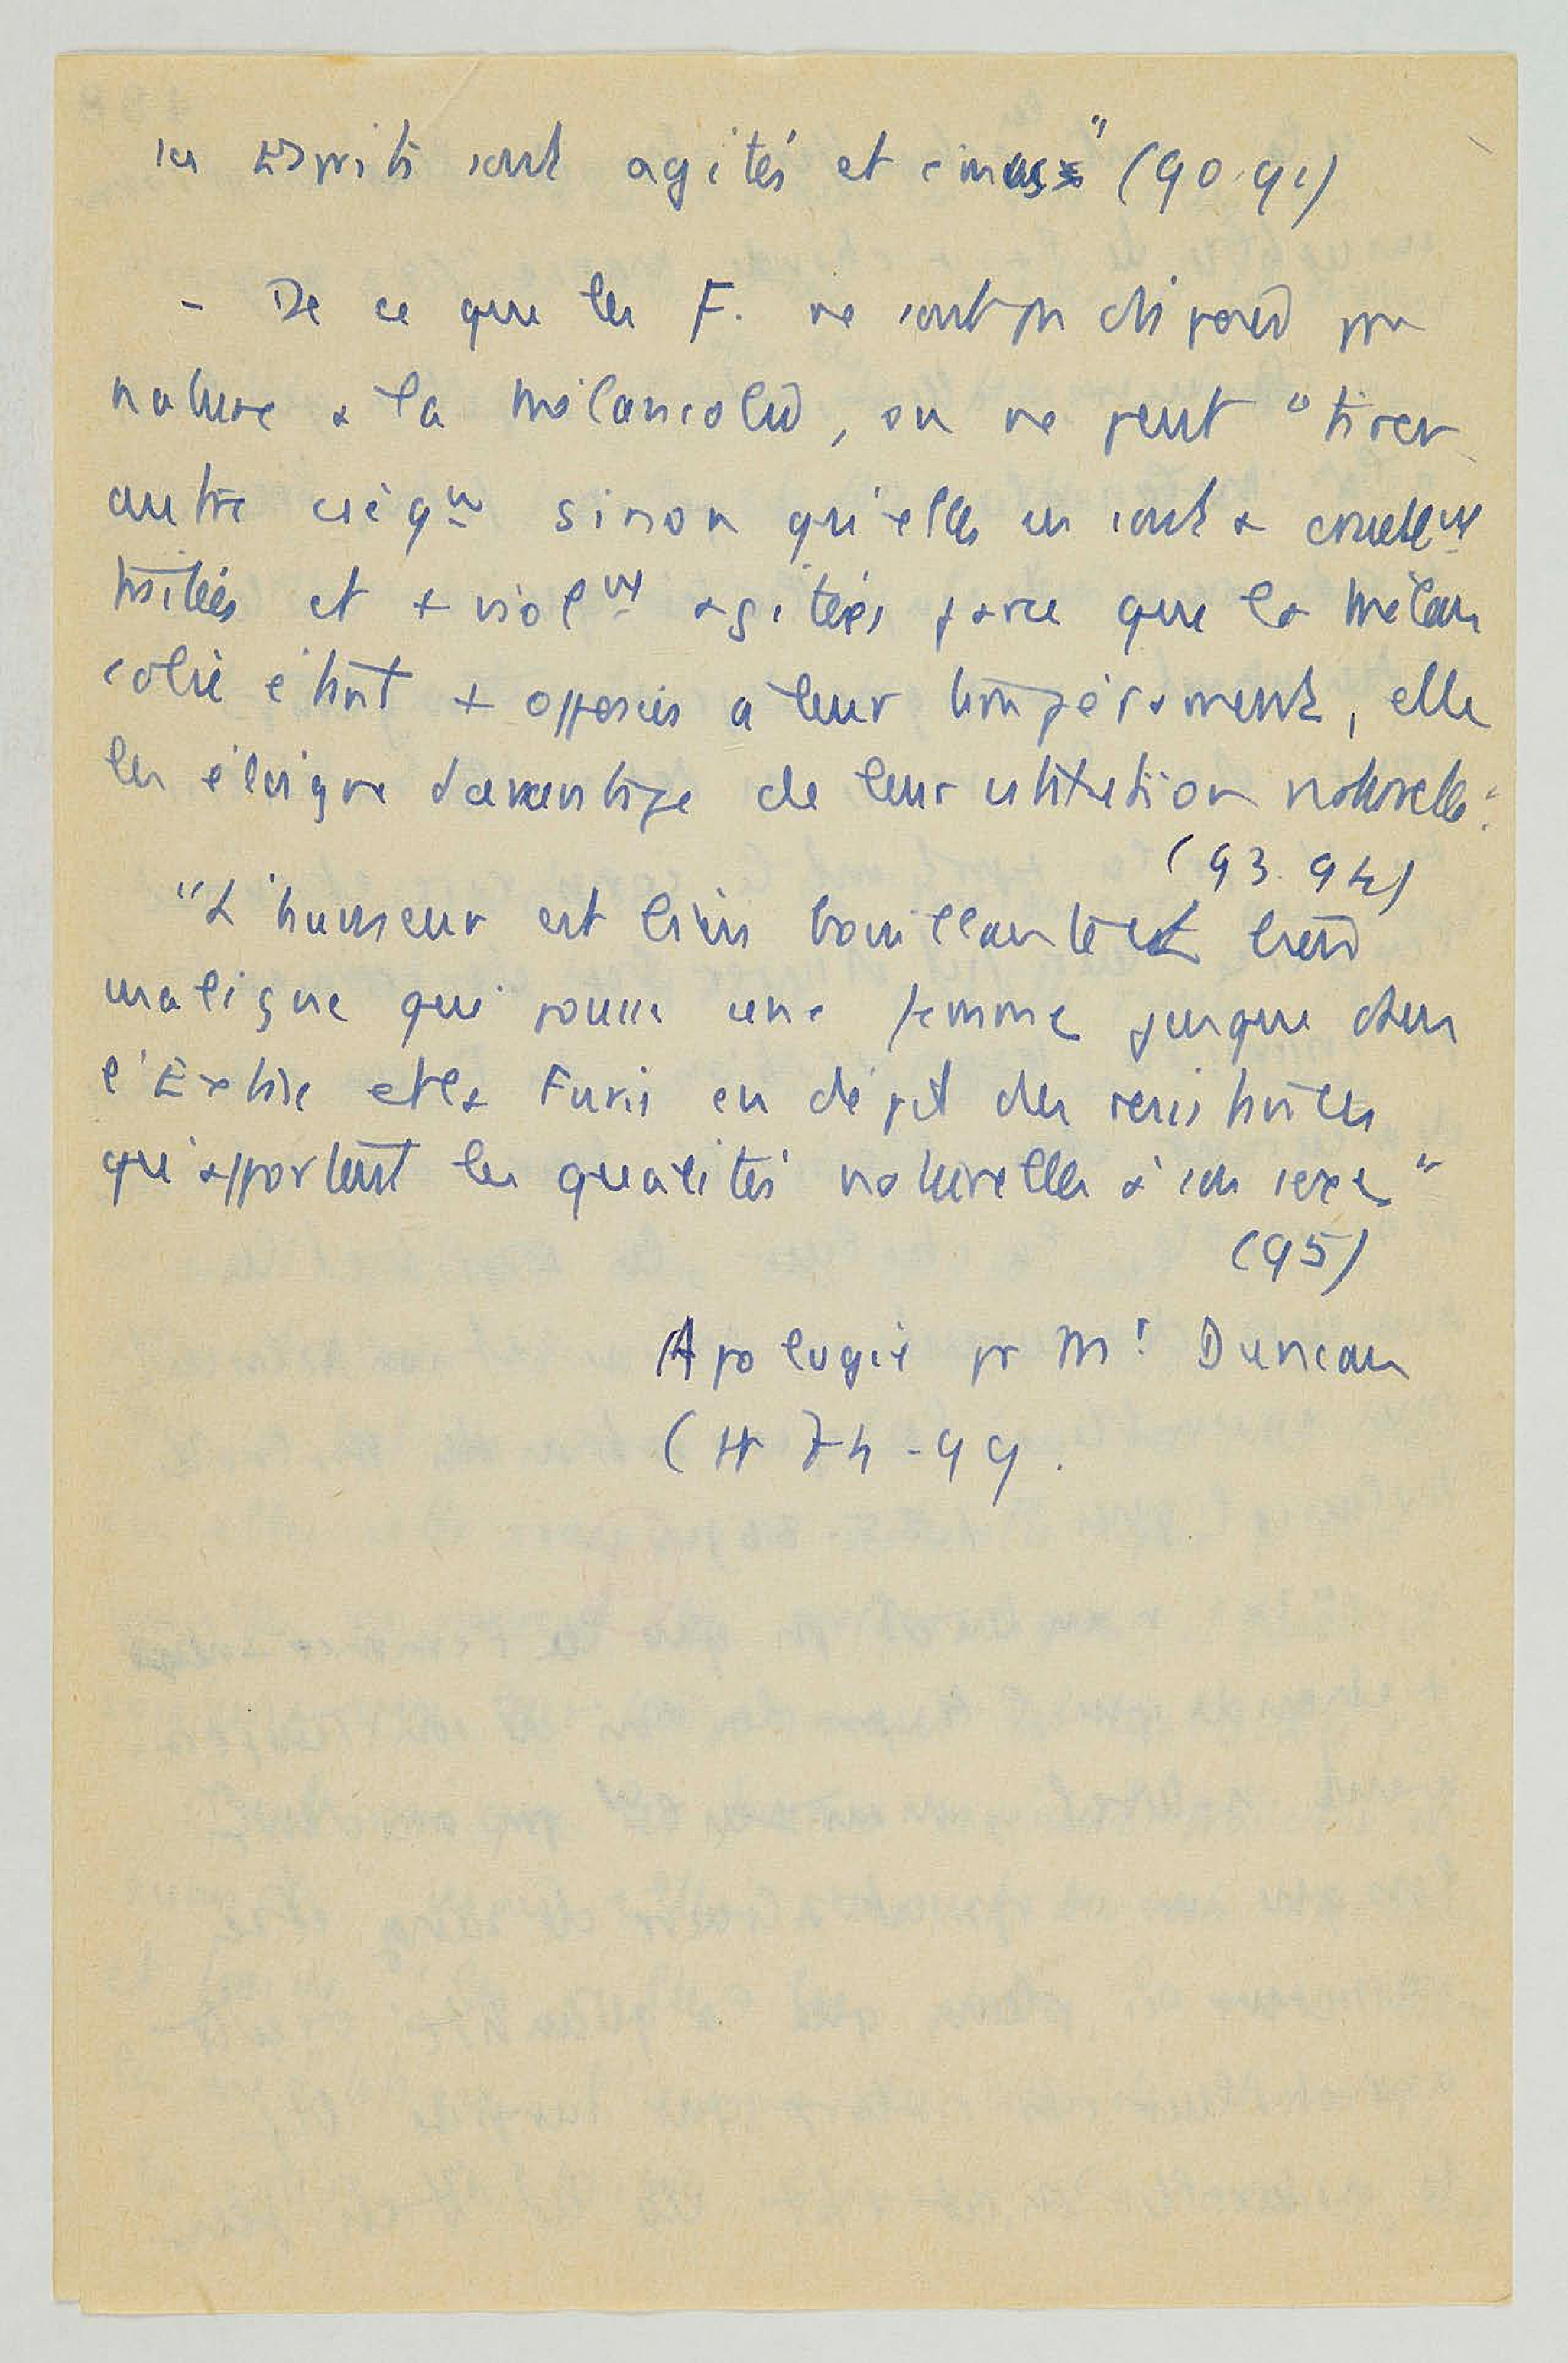 ses Esprits sont agités et émus" (90.91)
- De ce que les F. ne sont pas disposées par
nature à la mélancolie, on ne peut "tirer
autre cséqu sinon qu'elles en sont + cruellnt
traitées et + violnt agitées parce que la mélan
colie étant + opposée à leur tempérament, elle
les éloigne davantage de leur cstitution naturelle".
(93.94)
"L'humeur est bien bouillante et bien
maligne qui pousse une femme jusque dans
l'Extase et la Furie en dépit des resistances
qu'apportent les qualités naturelles à son sexe"
(95)
Apologie pr Mr Duncan
(H 74-99.